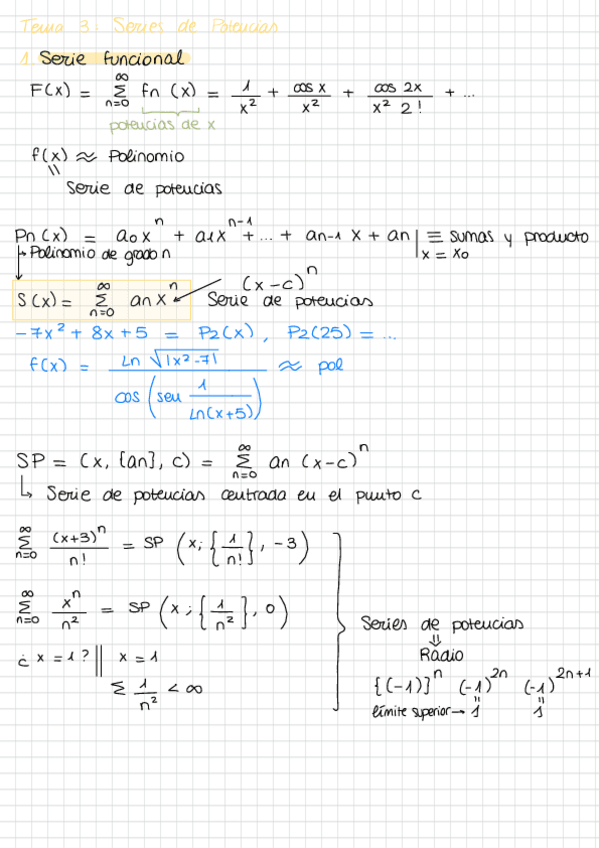 Tema 3: Series de Potencias
1. Serie funcional
F(x) = ∞ Σ n=0 fn (x) = 1/x² + cos x/x² + cos 2x/x² 2! + ...
potencias de x
f(x) ≈ Polinomio
=
Serie de potencias
Pn(x) = a0xⁿ + a1xⁿ⁻¹ + ... + an-1 x + an | x = x0 ≡ sumas y producto
↳ Polinomio de grado n
(x-c)ⁿ
S(x) = ∞ Σ n=0 anxⁿ Serie de potencias
-7x² + 8x + 5 = P2(x), P2(25) = ...
f(x) = Ln √|x²-7| / cos (seu 1/Ln(x+5)) ≈ pol
SP = (x, {an}, c) = ∞ Σ n=0 an (x-c)ⁿ
↳ Serie de potencias centrada en el punto c
∞ Σ n=0 (x+3)ⁿ/n! = SP (x; {1/n!}, -3)
∞ Σ n=0 xⁿ/n² = SP (x; {1/n²}, 0)
Series de potencias
⇓
Rádio
¿x = 1? || x = 1
Σ 1/n² < ∞
{(-1)}ⁿ (-1)²ⁿ (-1)²ⁿ⁺¹
límite superior → 1 1